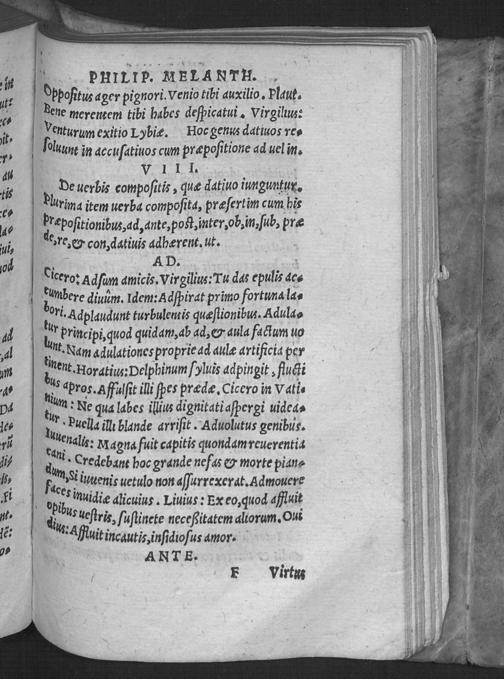 PHILIP. MELANTH.
Oppositus ager pignori. Venio tibi auxilio. Plaut.
Bene merentem tibi habes despicatui. Virgilius:
Venturum exitio Lybiæ. Hoc genus datiuos re-
soluunt in accusatiuos cum præpositione ad uel in.
VIII.
De uerbis compositis, quæ datiuo iunguntur.
Plurima item uerba composita, præsertim cum his
præpositionibus, ad, ante, post, inter, ob, in, sub, præ
de, re, & con, datiuis adhærent. ut.
AD.
Cicero: Adsum amicis. Virgilius: Tu das epulis ac-
cumbere diuûm. Idem: Adspirat primo fortuna la-
bori. Adplaudunt turbulentis quæstionibus. Adula-
tur principi, quod quidam, ab ad, & aula factum uo
lunt. Nam adulationes proprie ad aulæ artificia per
tinent. Horatius: Delphinum syluis adpingit, flucti
bus apros. Affulsit illi spes prædæ. Cicero in Vati-
nium: Ne qua labes illius dignitati aspergi uidea-
tur. Puella illi blande arrisit. Aduolutus genibus.
Iuuenalis: Magna fuit capitis quondam reuerentia
cani. Credebant hoc grande nefas & morte pian-
dum, Si iuuenis uetulo non assurrexerat. Admouere
faces inuidiæ alicuius. Liuius: Ex eo, quod affluit
opibus uestris, sustinete necessitatem aliorum. Oui
dius: Affluit incautis, insidiosus amor.
ANTE.
F Virtus